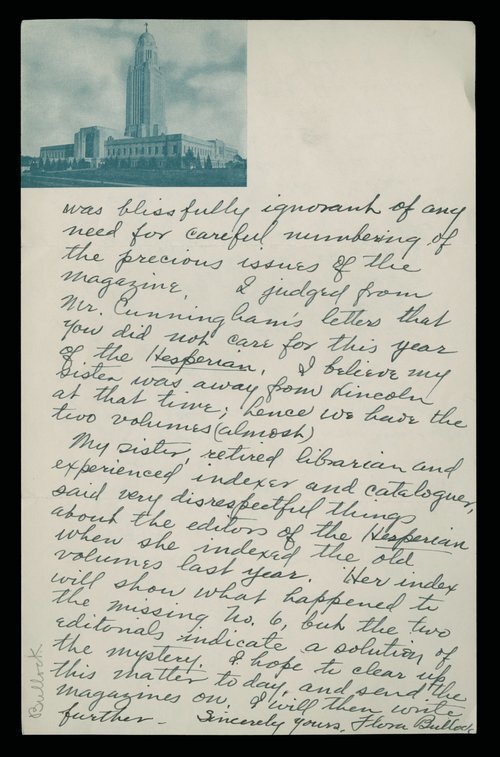 was blissfully ignorant of any
need for careful numbering of
the precious issues of the
magazine. I judged from
Mr. Cunningham's letters that
you did not care for this year
of the Hesperian. I believe my
sister was away from Lincoln
at that time; hence we have the
two volumes (almost)
My sister, retired librarian and
experienced indexer and cataloguer,
said very disrespectful things
about the editors of the Hesperian
when she indexed the old
volumes last year. Her index
will show what happened to
the missing No. 6, but the two
editorials indicate a solution of
the mystery. I hope to clear up
this matter today, and send the
magazines on. I will then write
further - Sincerely yours, Flora Bullock
Bullock